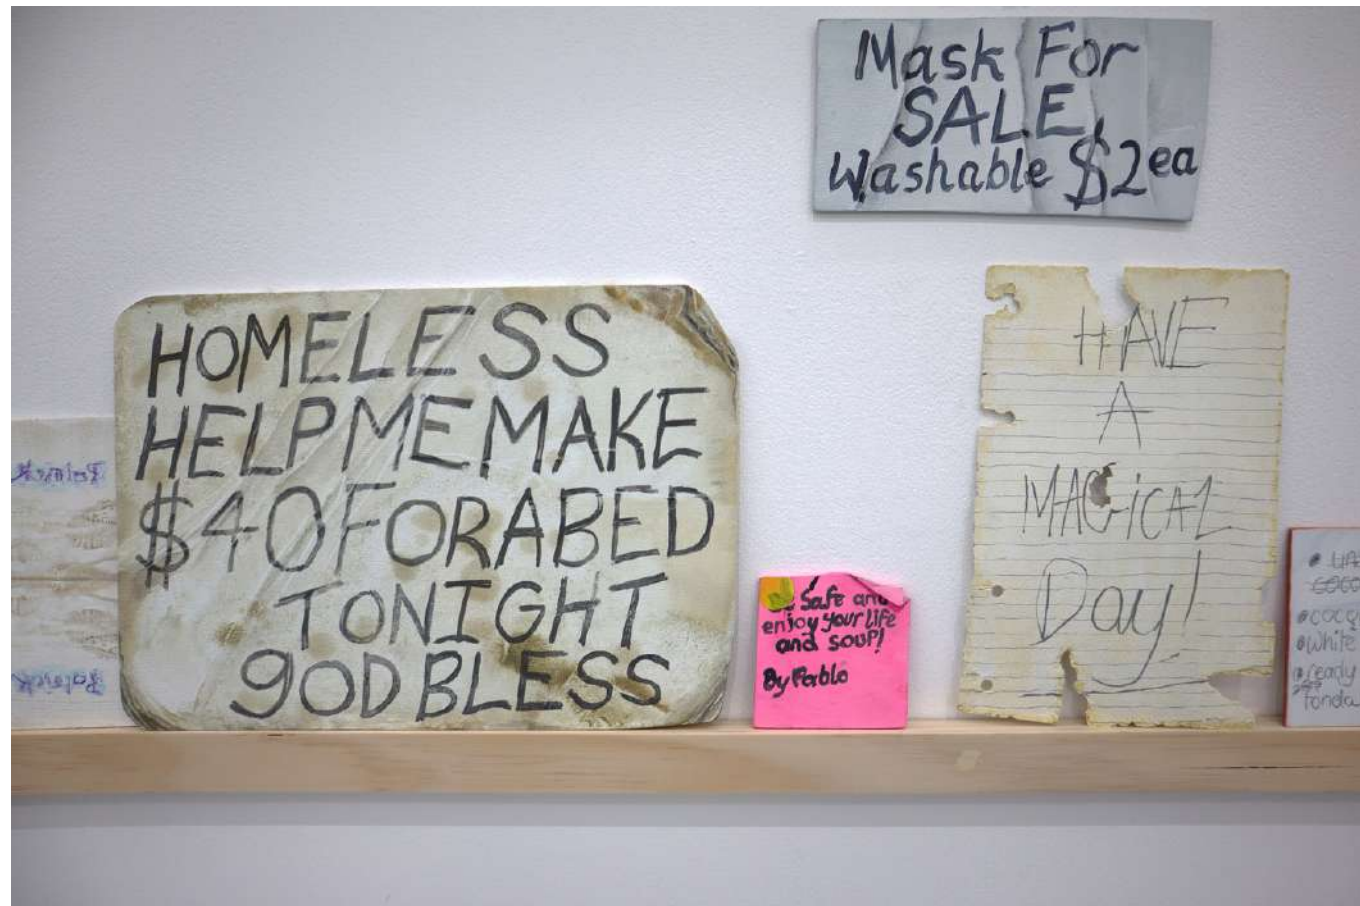 Mask For
SALE,
Washable $2ea
HOMELESS
HELP ME MAKE
$40 FOR A BED
TONIGHT
gOD BLESS
Safe and
enjoy your life
and soup!
By Perblo
HAVE
A
MAGiCAL
Day!
COCO
white
ready